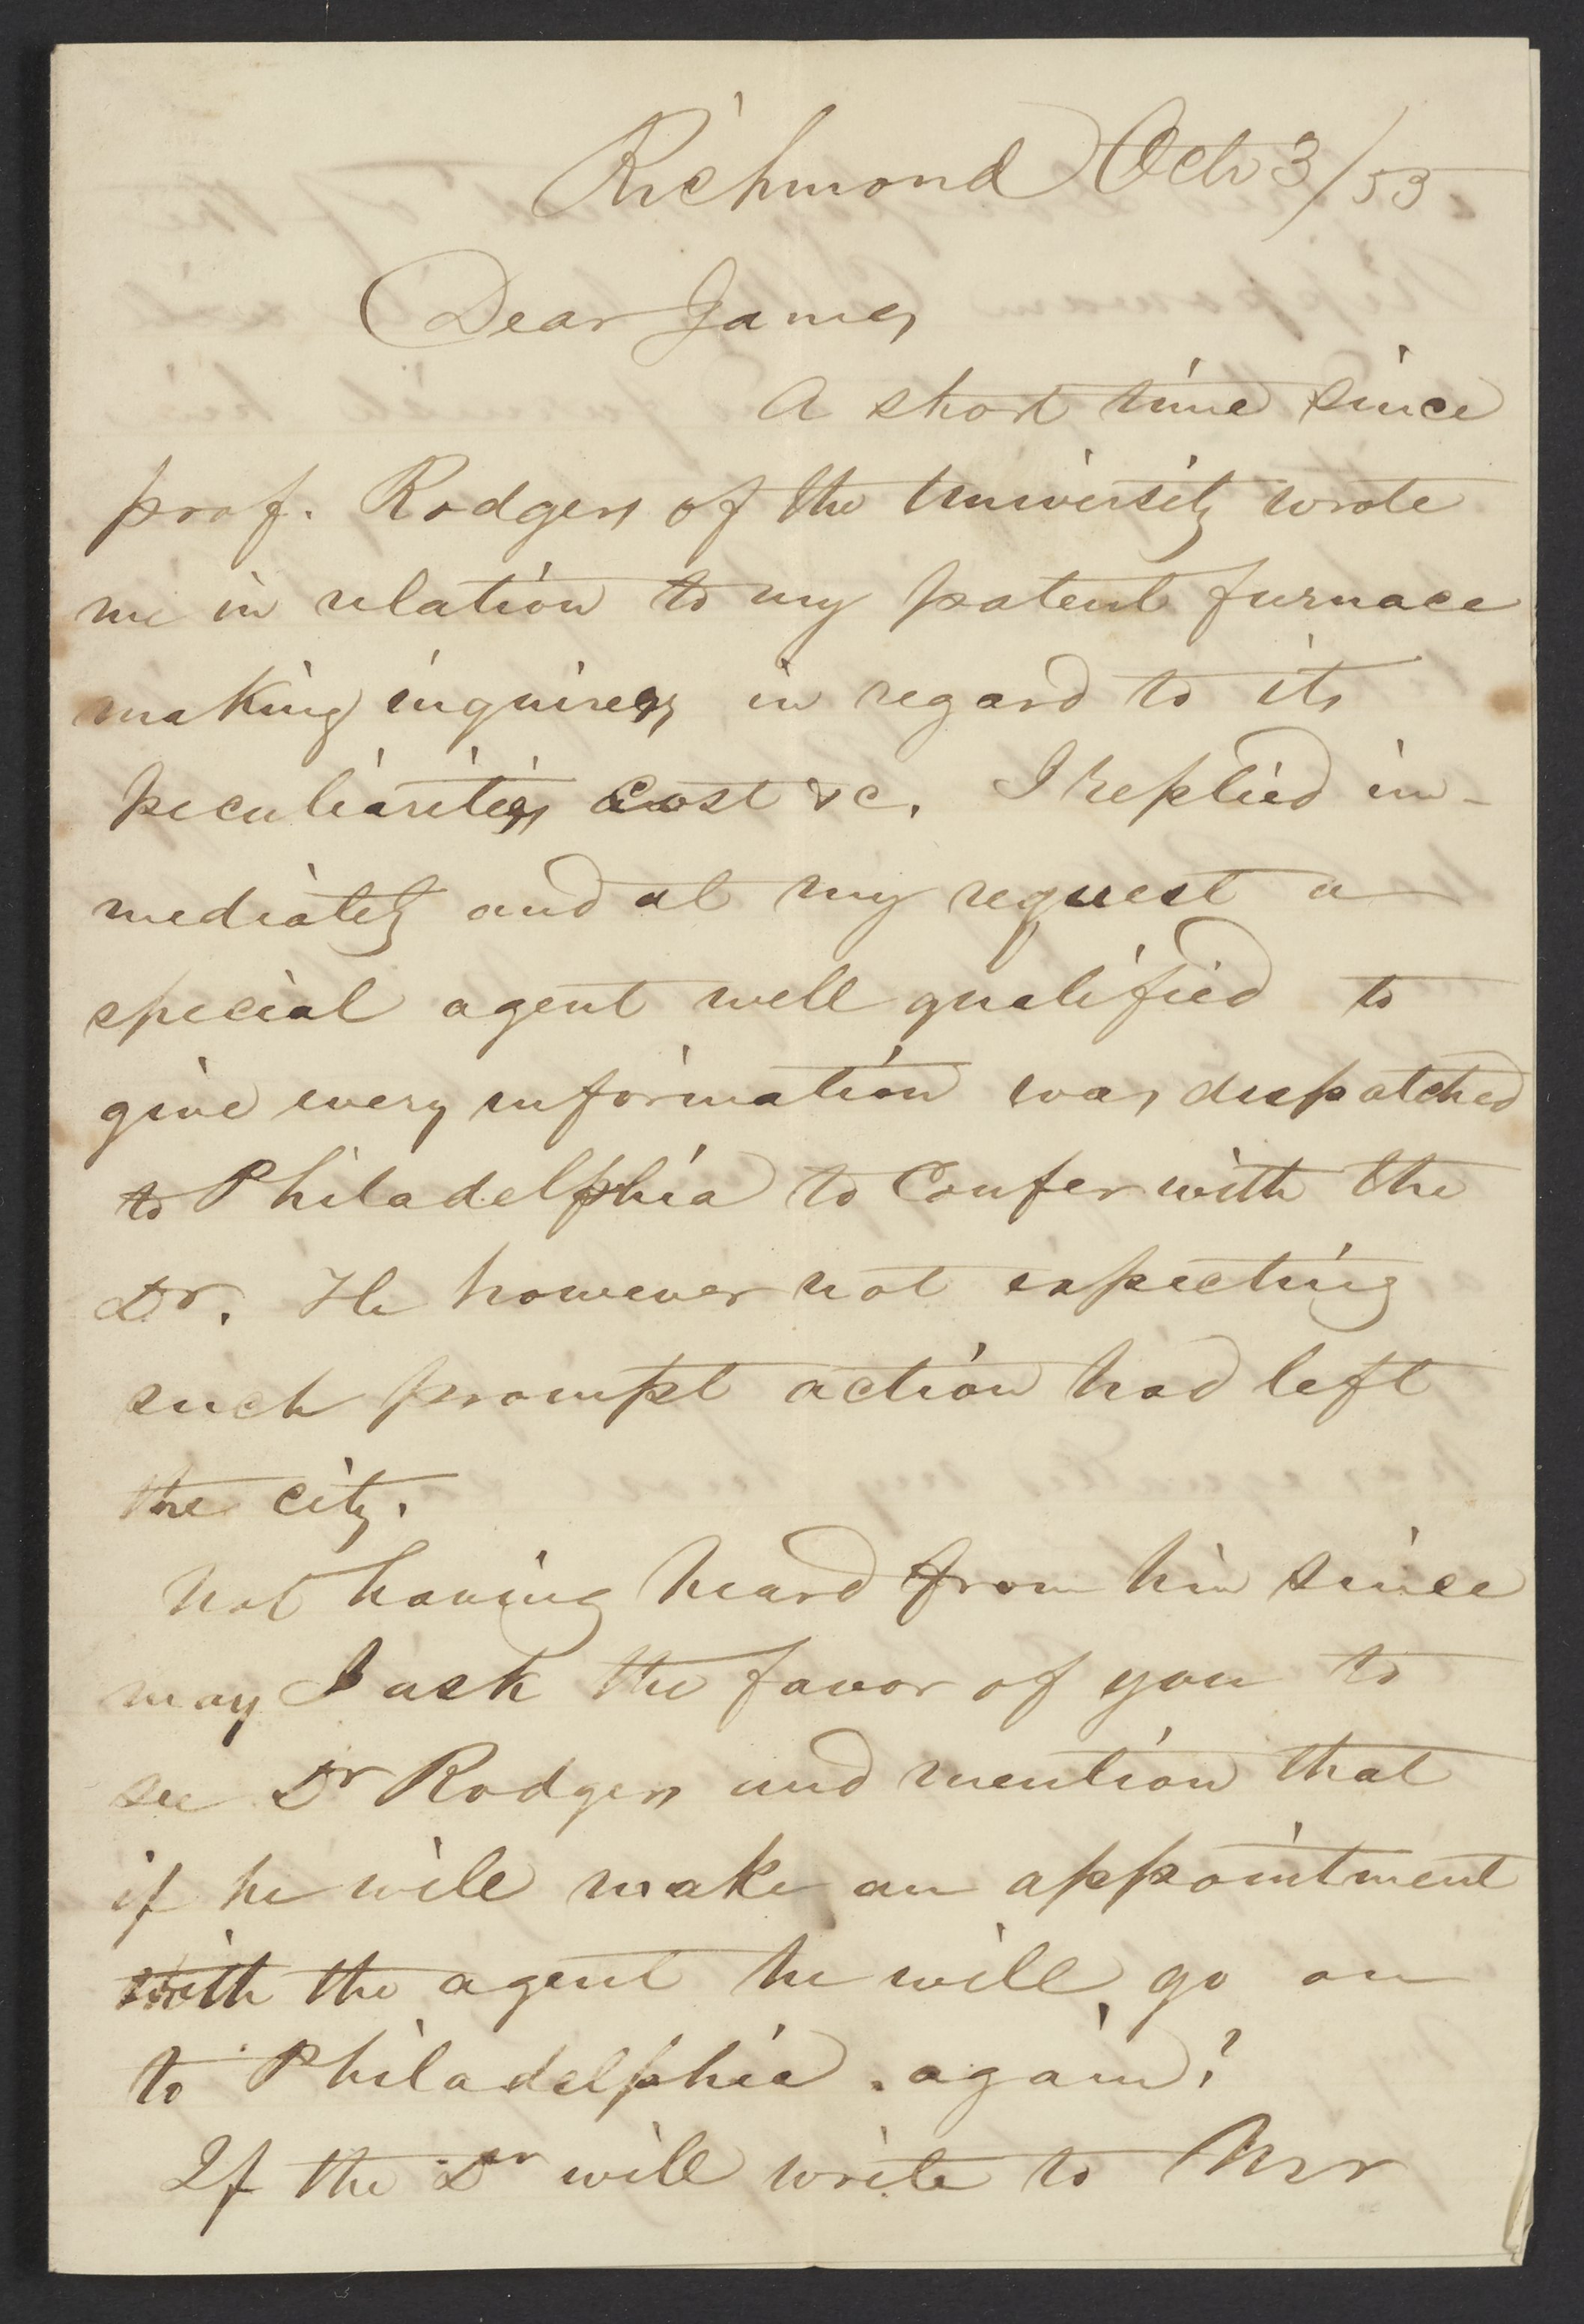 Richmond Octr 3/53
Dear James
A short time since
prof. Rodgers of the University wrote
me in relation to my patent furnace
making inquires in regard to its
peculiarities Cost &c. I replied im-
mediately and at my request a
special agent well qualified to
give every information was dispatched
to Philadelphia to Confer with the
Dr. He however not expecting
such prompt action had left
the city.
Not having heard from him since
may I ask the favor of you to
see Dr Rodgers and mention that
if he will make an appointment
with the agent he will go on
to Philadelphia again?
If the Dr will write to Mr